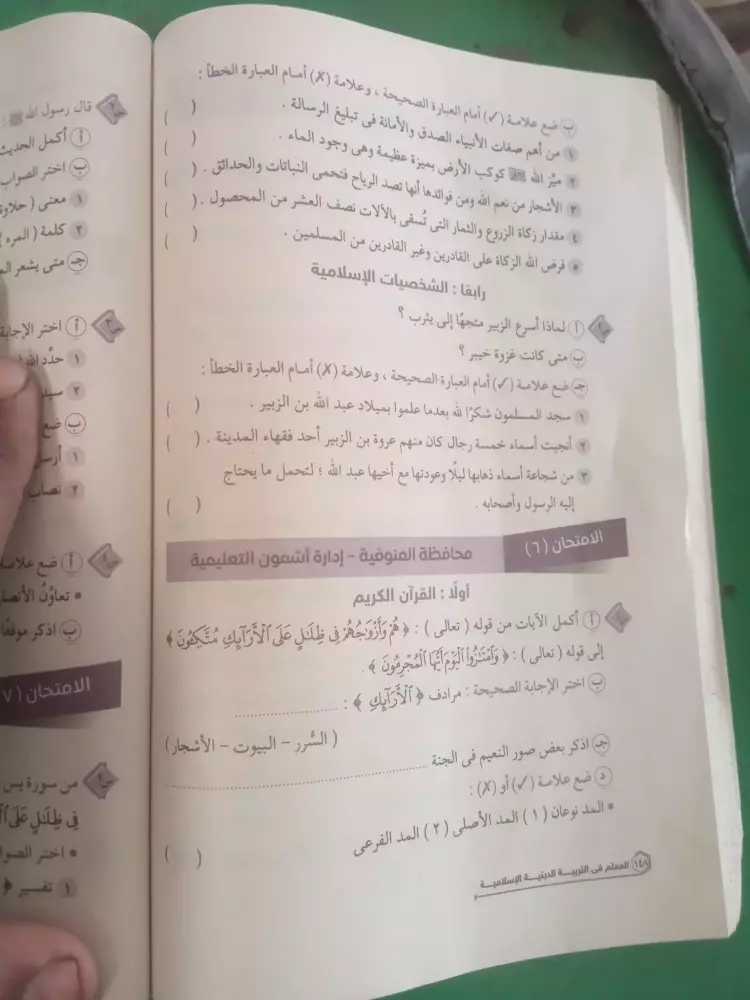 ب ضع علامة (✓) أمام العبارة الصحيحة ، وعلامة (✗) أمام العبارة الخطأ :
١ من أهم صفات الأنبياء الصدق والأمانة فى تبليغ الرسالة . ( )
٢ ميَّز الله ﷻ كوكب الأرض بميزة عظيمة وهى وجود الماء . ( )
٣ الأشجار من نعم الله ومن فوائدها أنها تصد الرياح فتحمى النباتات والحدائق . ( )
٤ مقدار زكاة الزروع والثمار التى تُسقى بالآلات نصف العشر من المحصول . ( )
٥ فرض الله الزكاة على القادرين وغير القادرين من المسلمين . ( )
رابعًا : الشخصيات الإسلامية
أ لماذا أسرع الزبير متجهًا إلى يثرب ؟
ب متى كانت غزوة خيبر ؟
جـ ضع علامة (✓) أمام العبارة الصحيحة ، وعلامة (✗) أمام العبارة الخطأ :
١ سجد المسلمون شكرًا لله بعدما علموا بميلاد عبد الله بن الزبير . ( )
٢ أنجبت أسماء خمسة رجال كان منهم عروة بن الزبير أحد فقهاء المدينة . ( )
٣ من شجاعة أسماء ذهابها ليلًا وعودتها مع أخيها عبد الله ؛ لتحمل ما يحتاج
إليه الرسول وأصحابه . ( )
الامتحان (٦) محافظة المنوفية - إدارة أشمون التعليمية
أولًا : القرآن الكريم
أ أكمل الآيات من قوله ( تعالى ) : ﴿ هُمْ وَأَزْوَٰجُهُمْ فِى ظِلَٰلٍ عَلَى ٱلْأَرَآئِكِ مُتَّكِـُٔونَ ﴾
إلى قوله ( تعالى ) : ﴿ وَٱمْتَٰزُوا۟ ٱلْيَوْمَ أَيُّهَا ٱلْمُجْرِمُونَ ﴾ .
ب اختر الإجابة الصحيحة : مرادف ﴿ ٱلْأَرَآئِكِ ﴾ : ..................
( السُّرر - البيوت - الأشجار )
جـ اذكر بعض صور النعيم فى الجنة ..................
د ضع علامة (✓) أو (✗) :
• المد نوعان ( ١ ) المد الأصلى ( ٢ ) المد الفرعى ( )
١٤٨ المعلم فى التربية الدينية الإسلامية
س٢ قال رسول الله ﷺ :
أ أكمل الحديث
ب اختر الصواب
١ معنى ( حلاوة
٢ كلمة ( المرء )
جـ متى يشعر
س٣ أ اختر الإجابة
١ حدَّد الله
٢
ب ضع
١
٢ نصاب
س٤ أ ضع علامة
• تعاوُنُ الأنصار
ب اذكر موقفًا
الامتحان (٧
من سورة يس
فِى ظِلَٰلٍ عَلَى
• اختر الصواب
١ تفسير ﴿